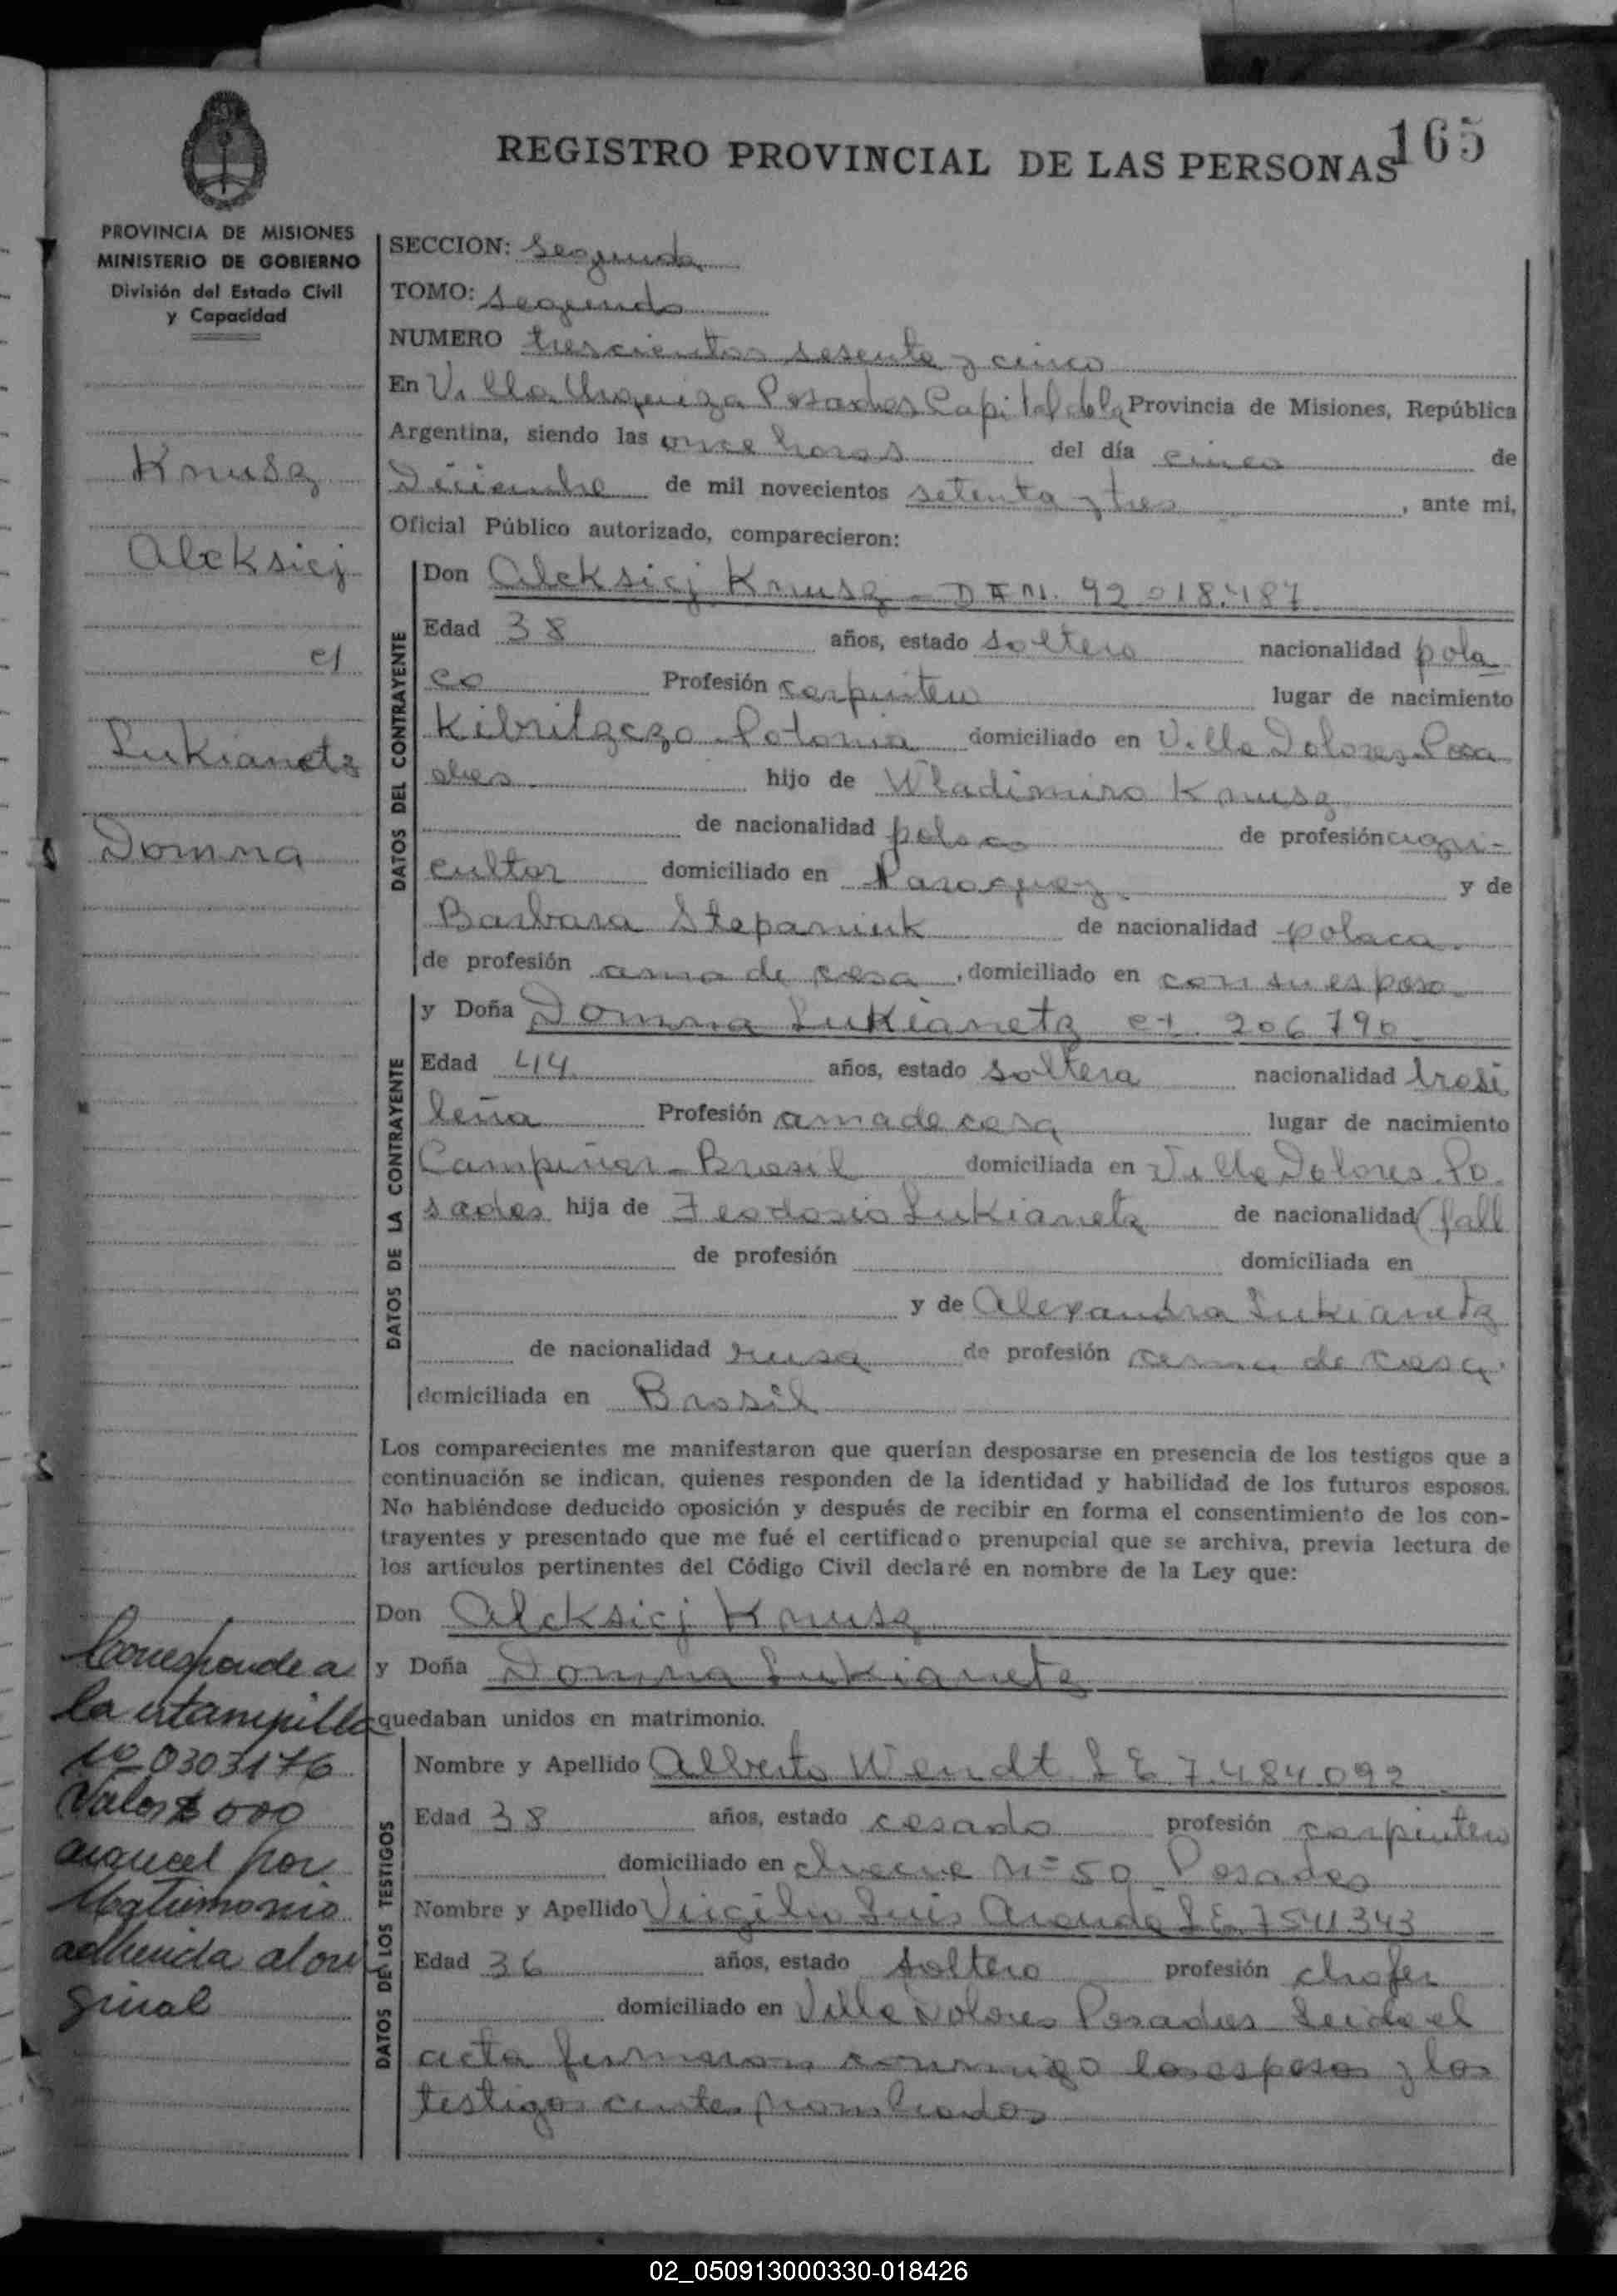 165
REGISTRO PROVINCIAL DE LAS PERSONAS
PROVINCIA DE MISIONES
MINISTERIO DE GOBIERNO
División del Estado Civil
y Capacidad
Knusz
Aleksiej
c/
Lukianetz
Domna
Corresponde a
la estampilla
Nº 0303176
Valor $ 000
arancel por
Matrimonio
adherida al ori
ginal
SECCION: Segunda
TOMO: segundo
NUMERO trescientos sesenta y cinco
En Villa Urquiza Posadas Capital de la Provincia de Misiones, República
Argentina, siendo las once horas del día cinco de
Diciembre de mil novecientos setenta y tres, ante mi,
Oficial Público autorizado, comparecieron:
DATOS DEL CONTRAYENTE
Don Aleksiej Knusz - D.N.I. 92.018.487
Edad 38 años, estado soltero nacionalidad pola
co Profesión carpintero lugar de nacimiento
Kibrilzczo Polonia domiciliado en Villa Dolores Posa
das hijo de Wladimiro Knusz
de nacionalidad polaco de profesión agri-
cultor domiciliado en Paraguay y de
Barbara Stepaniuk de nacionalidad polaca.
de profesión ama de casa, domiciliado en con su esposo
DATOS DE LA CONTRAYENTE
y Doña Domna Lukianetz c/. 206790
Edad 44 años, estado soltera nacionalidad brasi
leña Profesión ama de casa lugar de nacimiento
Campiñas - Brasil domiciliada en Villa Dolores. Po.
sadas hija de Feodosio Lukianetz de nacionalidad (fall
de profesión domiciliada en
y de Alexandra Lukianetz
de nacionalidad rusa de profesión ama de casa.
domiciliada en Brasil
Los comparecientes me manifestaron que querían desposarse en presencia de los testigos que a
continuación se indican, quienes responden de la identidad y habilidad de los futuros esposos.
No habiéndose deducido oposición y después de recibir en forma el consentimiento de los con-
trayentes y presentado que me fué el certificado prenupcial que se archiva, previa lectura de
los artículos pertinentes del Código Civil declaré en nombre de la Ley que:
Don Aleksiej Knusz
y Doña Domna Lukianetz
quedaban unidos en matrimonio.
DATOS DE LOS TESTIGOS
Nombre y Apellido Alberto Wendt L E 7.484.092
Edad 38 años, estado casado profesión carpintero
domiciliado en chacra Nº 50 Posadas
Nombre y Apellido Virgilio Luis Aranda L E. 7541343
Edad 36 años, estado soltero profesión chofer
domiciliado en Villa Dolores Posadas Leida el
acta firmaron conmigo los esposos y los
testigos antes nombrados
02_050913000330-018426